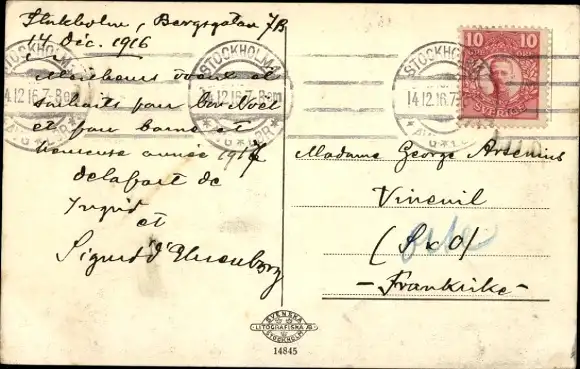 Stokholm, Bergsgatan 7B
14 Déc. 1916
Meilleurs voeux et
souhaits pour bon Noël
et pour bonne et
heureuse année 1917
de la part de
Ingrid
et
Sigurd d'Ehrenborg
STOCKHOLM
14.12.16.7-8 em
STOCKHOLM
STOCKHOLM
14.12.16.7
10 10
SVERIGE
Madame George Arsenius
Vineuil
(S & O)
Oise
- Frankrike -
SVENSKA
LITOGRAFISKA AB
STOCKHOLM
14845